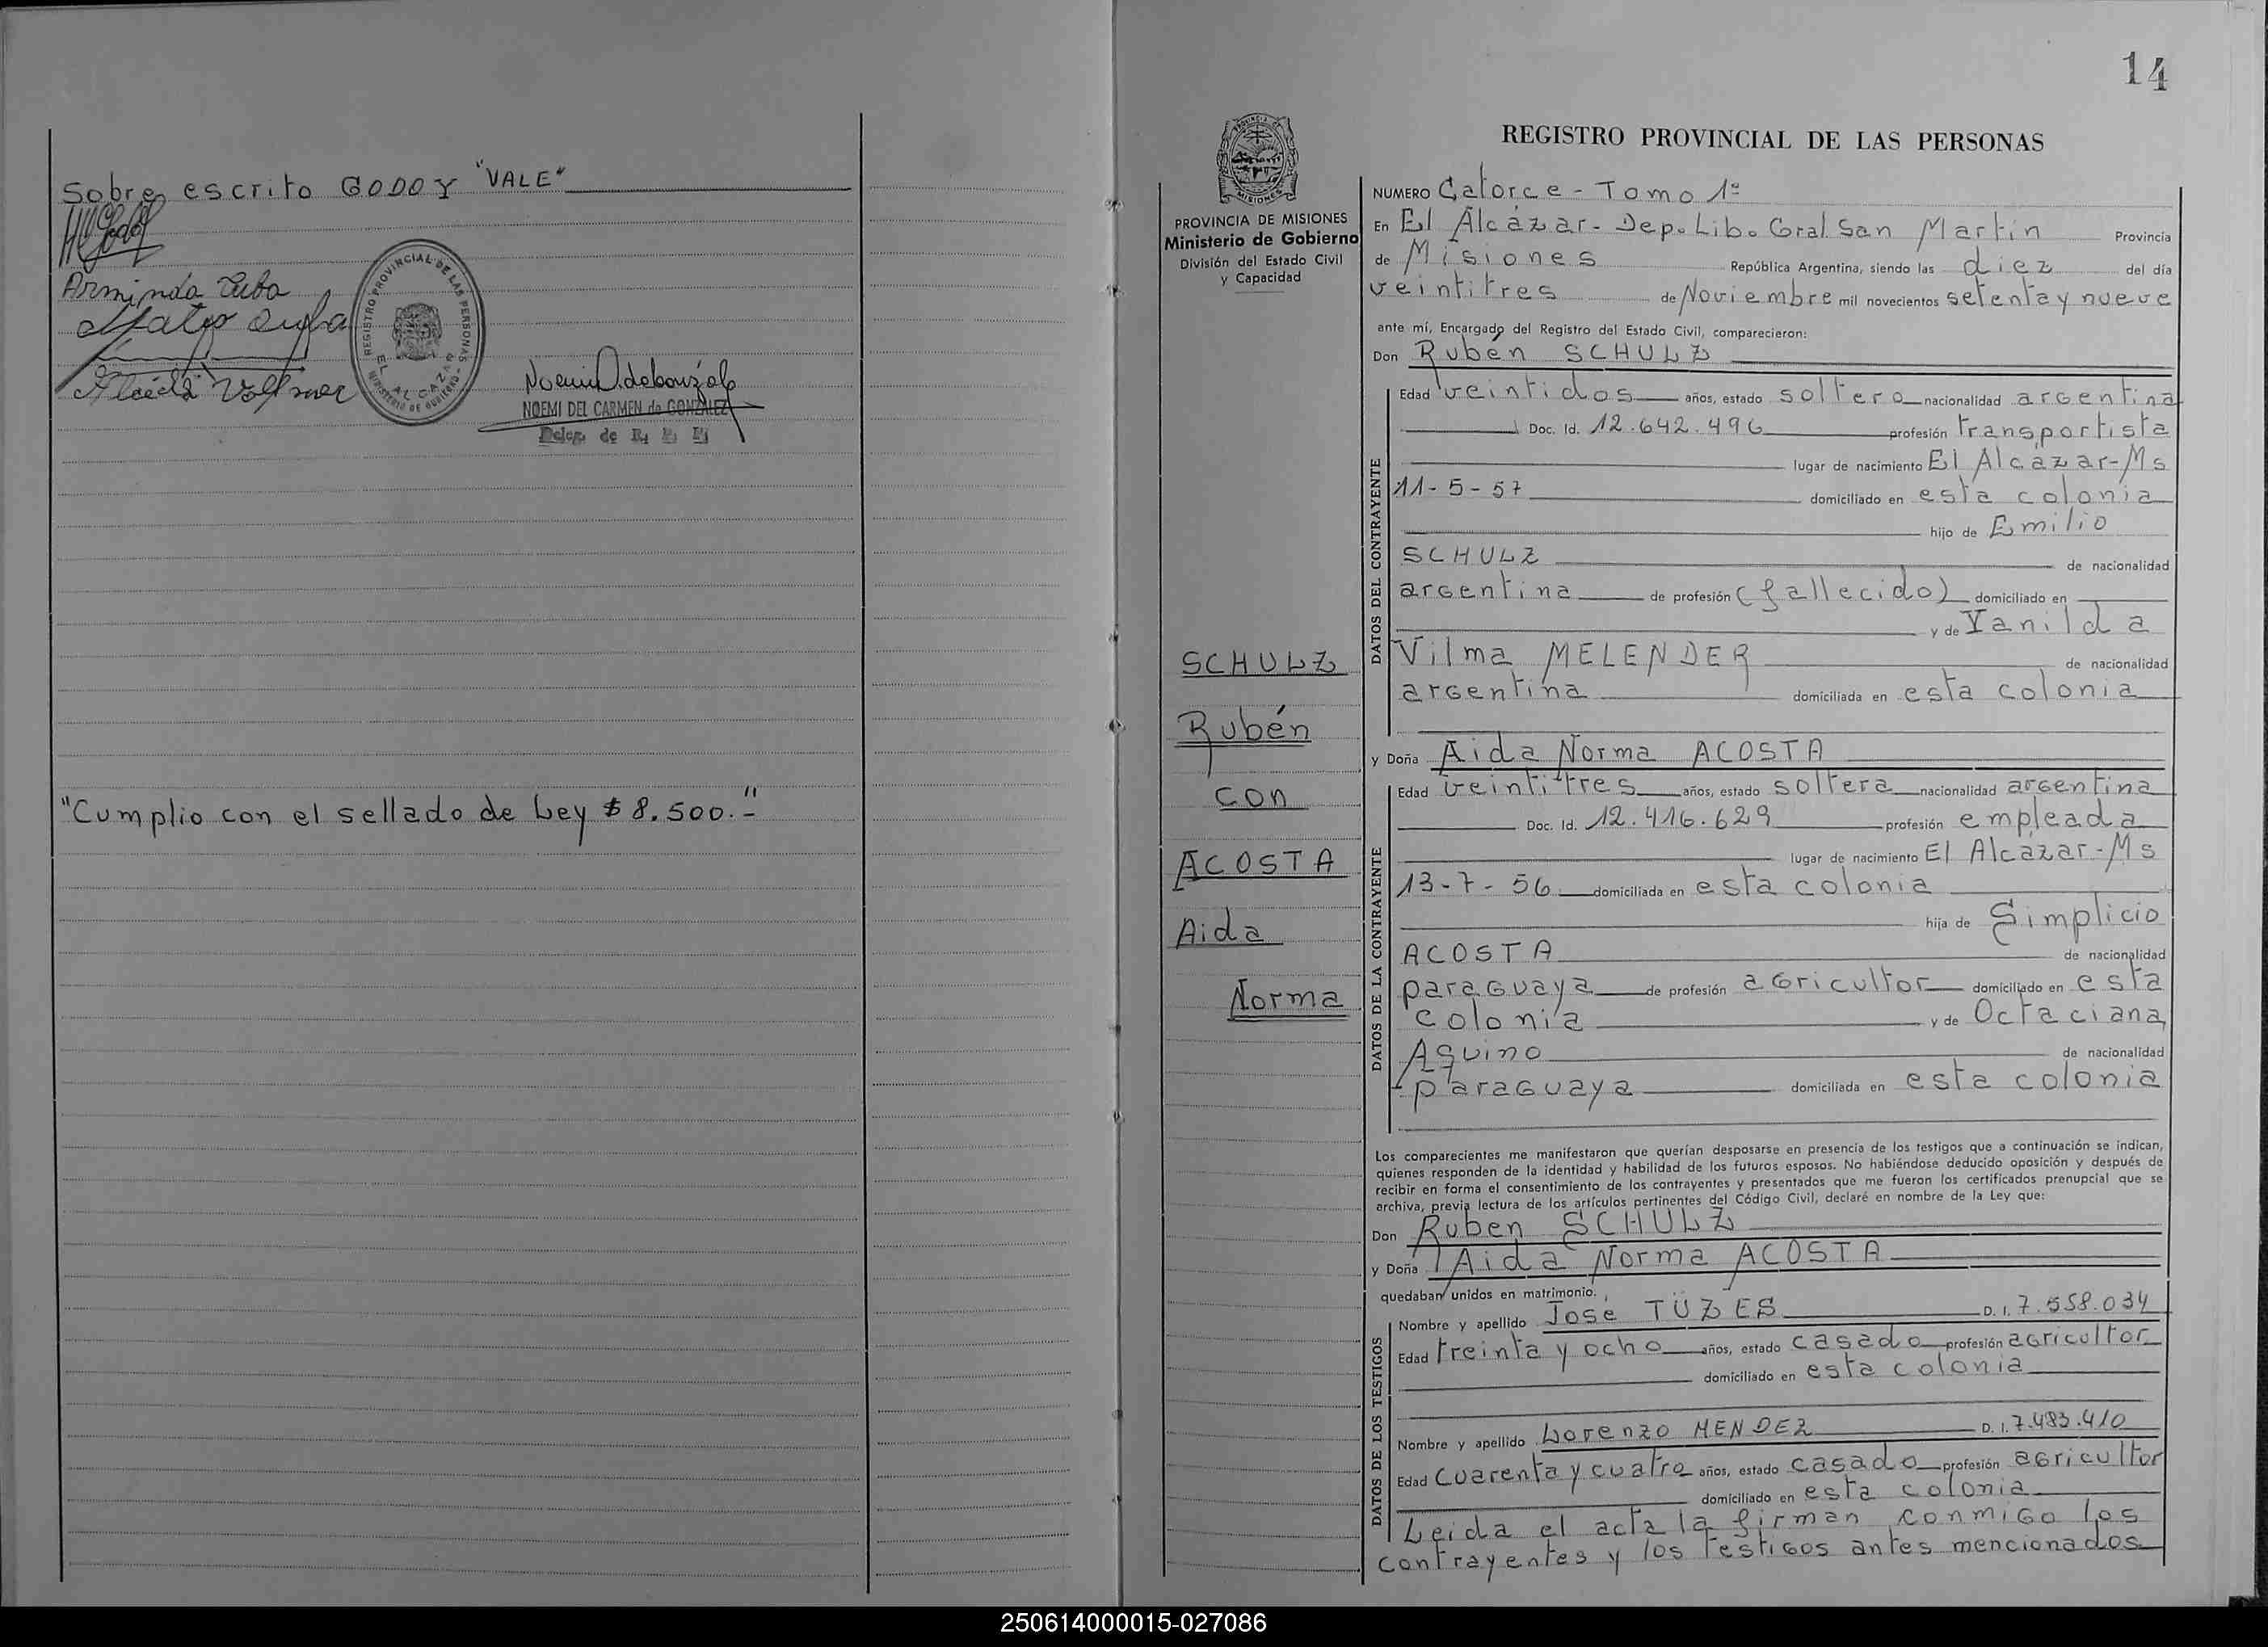 Sobre escrito GODOY "VALE"
Arminda Cuba
REGISTRO PROVINCIAL DE LAS PERSONAS
EL ALCAZAR
MINISTERIO DE GOBIERNO
NOEMI DEL CARMEN de GONZALEZ
Deleg. de
"Cumplio con el sellado de Ley $ 8.500.-"
14
PROVINCIA DE MISIONES
Ministerio de Gobierno
División del Estado Civil
y Capacidad
SCHULZ
Rubén
con
ACOSTA
Aida
Norma
REGISTRO PROVINCIAL DE LAS PERSONAS
NUMERO Catorce - Tomo 1º
En El Alcázar - Dep. Lib. Gral. San Martín Provincia
de Misiones República Argentina, siendo las diez del día
veintitres de Noviembre mil novecientos setenta y nueve
ante mí, Encargado del Registro del Estado Civil, comparecieron:
Don Rubén SCHULZ
DATOS DEL CONTRAYENTE
Edad veintidos años, estado soltero nacionalidad argentina
Doc. Id. 12.642.496 profesión transportista
lugar de nacimiento El Alcázar-Ms
11-5-57 domiciliado en esta colonia
hijo de Emilio
SCHULZ de nacionalidad
argentina de profesión (fallecido) domiciliado en
y de Vanilda
Vilma MELENDER de nacionalidad
argentina domiciliada en esta colonia
y Doña Aida Norma ACOSTA
DATOS DE LA CONTRAYENTE
Edad veintitres años, estado soltera nacionalidad argentina
Doc. Id. 12.416.629 profesión empleada
lugar de nacimiento El Alcazar-Ms
13-7-56 domiciliada en esta colonia
hija de Simplicio
ACOSTA de nacionalidad
paraguaya de profesión agricultor domiciliado en esta
colonia y de Octaciana
Aquino de nacionalidad
paraguaya domiciliada en esta colonia
Los comparecientes me manifestaron que querían desposarse en presencia de los testigos que a continuación se indican,
quienes responden de la identidad y habilidad de los futuros esposos. No habiéndose deducido oposición y después de
recibir en forma el consentimiento de los contrayentes y presentados que me fueron los certificados prenupcial que se
archiva, previa lectura de los artículos pertinentes del Código Civil, declaré en nombre de la Ley que:
Don Ruben SCHULZ
y Doña Aida Norma ACOSTA
quedaban unidos en matrimonio.
DATOS DE LOS TESTIGOS
Nombre y apellido José TÜZES D. I. 7.558.034
Edad treinta y ocho años, estado casado profesión agricultor
domiciliado en esta colonia
Nombre y apellido Lorenzo MENDEZ D. I. 7.483.410
Edad Cuarenta y cuatro años, estado casado profesión agricultor
domiciliado en esta colonia
Leida el acta la firman conmigo los
contrayentes y los testigos antes mencionados
250614000015-027086